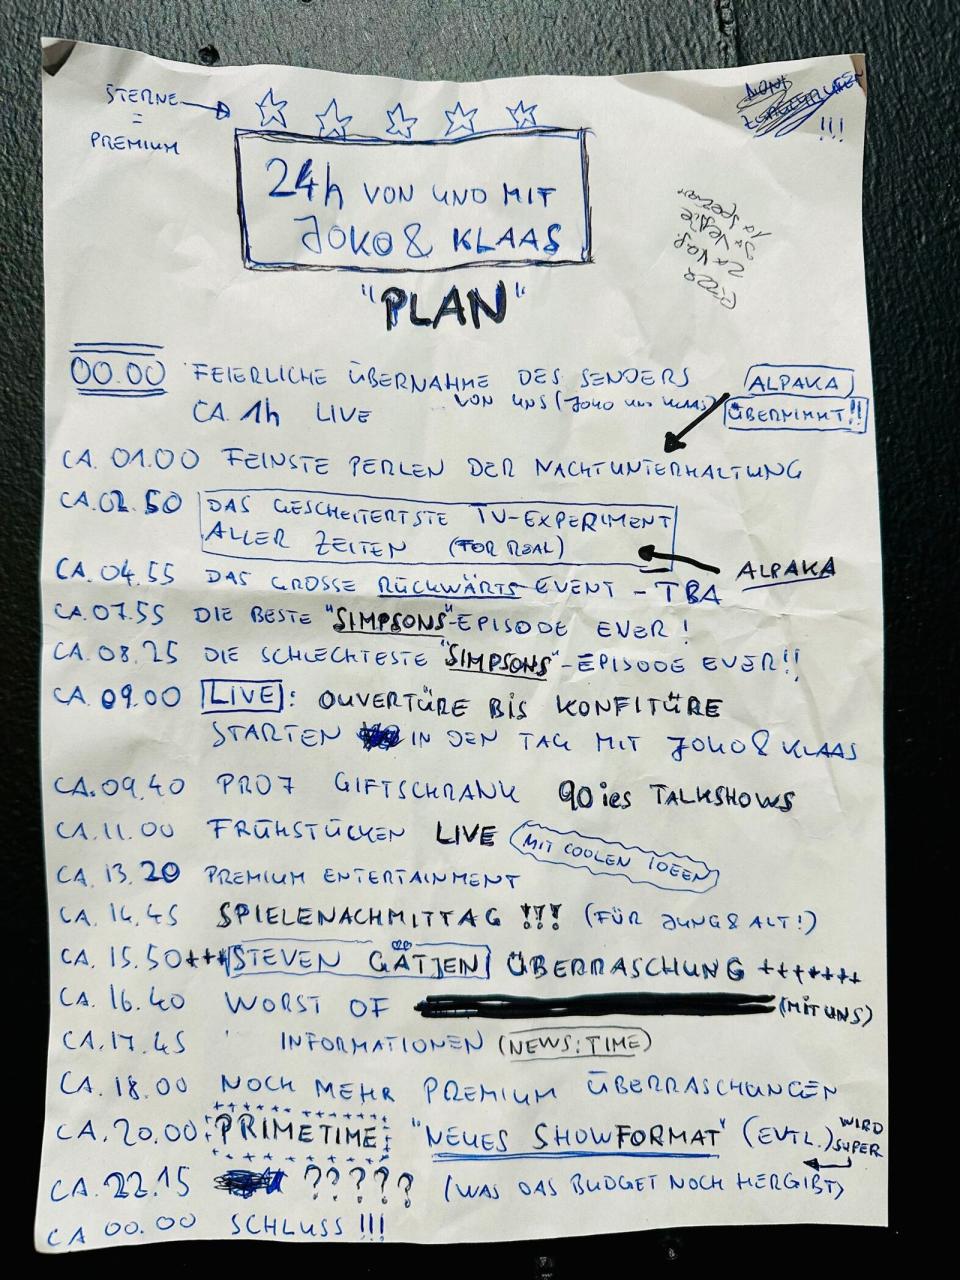 STERNE
=
PREMIUM
!!!
24h VON UND MIT
JOKO & KLAAS
"PLAN"
PIZZA
2x Veg.
1x Speziale
00.00 FEIERLICHE ÜBERNAHME DES SENDERS
VON UNS (JOKO UND KLAAS)
CA. 1h LIVE
ALPAKA
ÜBERNIMMT!!
CA. 01.00 FEINSTE PERLEN DER NACHTUNTERHALTUNG
CA. 02.50 DAS GESCHEITERTSTE TV-EXPERIMENT
ALLER ZEITEN (FOR REAL)
ALPAKA
CA. 04.55 DAS GROSSE RÜCKWÄRTS-EVENT - TBA
CA. 07.55 DIE BESTE "SIMPSONS"-EPISODE EVER!
CA. 08.25 DIE SCHLECHTESTE "SIMPSONS"-EPISODE EVER!!
CA. 09.00 LIVE: OUVERTÜRE BIS KONFITÜRE
STARTEN IN DEN TAG MIT JOKO & KLAAS
CA. 09.40 PRO7 GIFTSCHRANK 90ies TALKSHOWS
CA. 11.00 FRÜHSTÜCKEN LIVE MIT COOLEN IDEEN
CA. 13.20 PREMIUM ENTERTAINMENT
CA. 14.45 SPIELENACHMITTAG !!! (FÜR JUNG & ALT!)
CA. 15.50 +++ STEVEN GÄTJEN ÜBERRASCHUNG +++++++
CA. 16.40 WORST OF (MIT UNS)
CA. 17.45 INFORMATIONEN (NEWS:TIME)
CA. 18.00 NOCH MEHR PREMIUM ÜBERRASCHUNGEN
CA. 20.00 PRIMETIME: "NEUES SHOWFORMAT" (EVTL.) WIRD
SUPER
CA. 22.15 ????? (WAS DAS BUDGET NOCH HERGIBT)
CA 00.00 SCHLUSS!!!